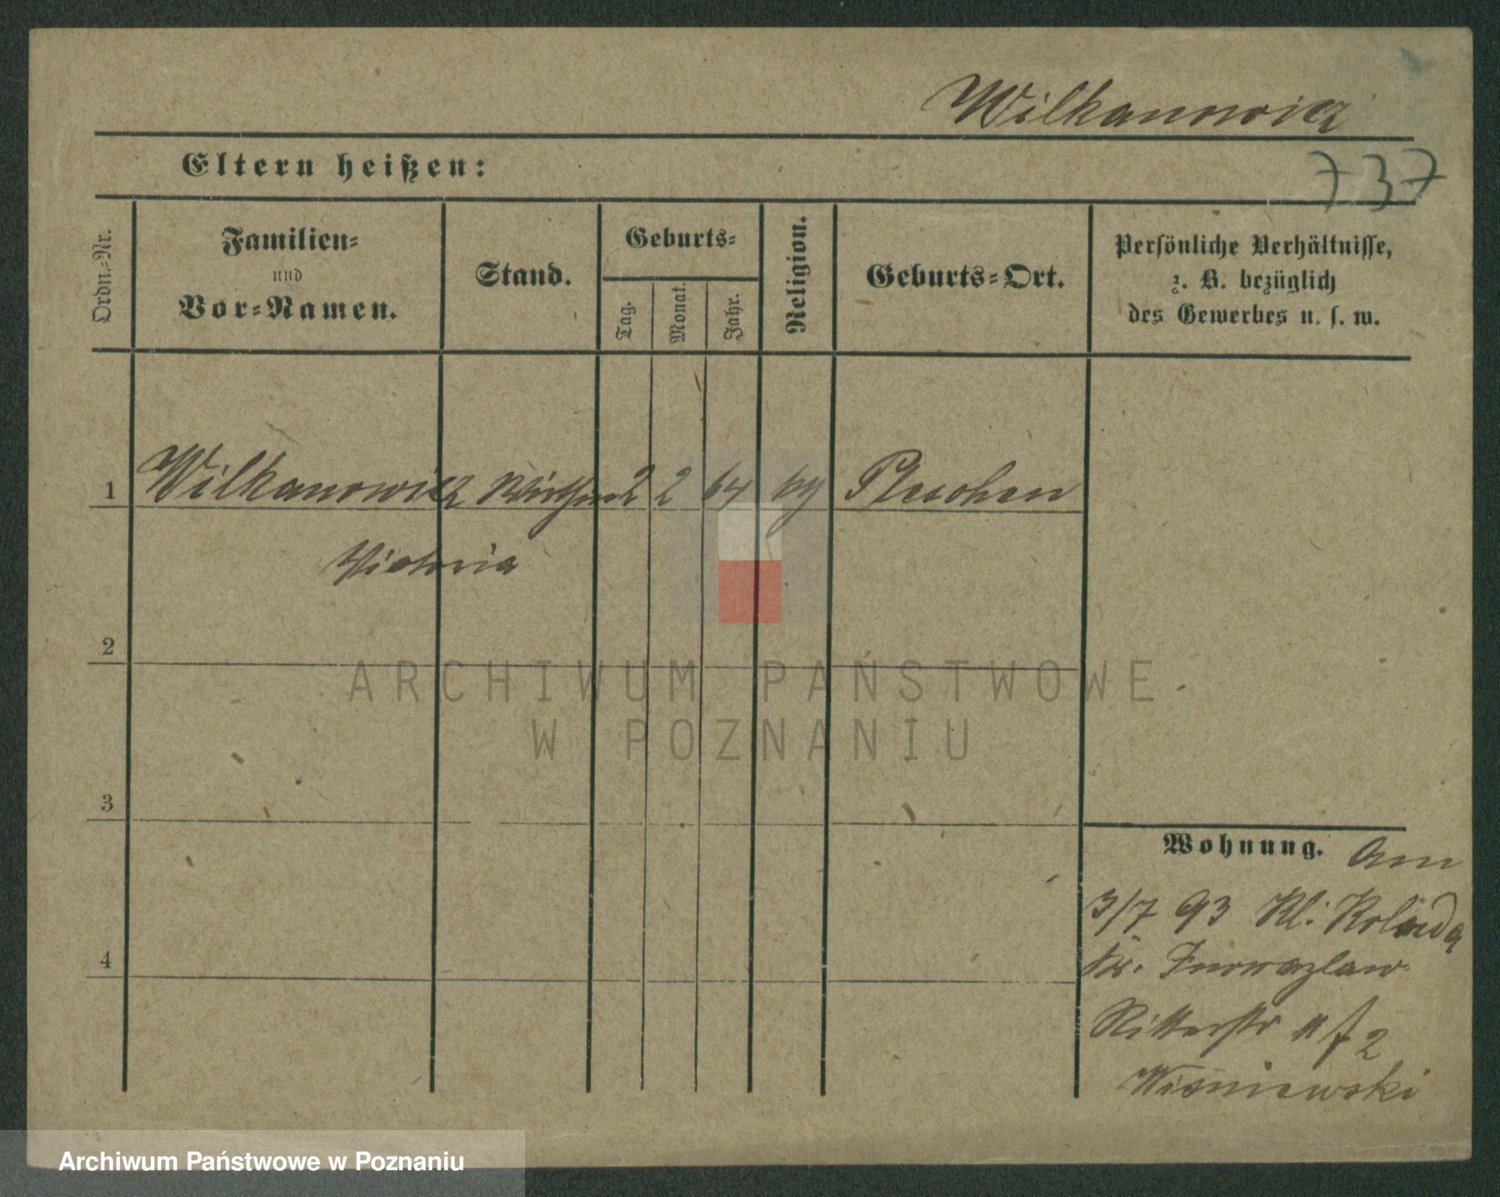 Wilkanowicz
Eltern heißen:
737
Ordn.-Nr.
Familien-
und
Vor-Namen.
Stand.
Geburts-
Tag.
Monat.
Jahr.
Religion.
Geburts-Ort.
Persönliche Verhältnisse,
z. B. bezüglich
des Gewerbes u. s. w.
1 Wilkanowicz 2 2 64 Pleschen
Victoria
2
ARCHIWUM PAŃSTWOWE
W POZNANIU
3
Wohnung. Am
3/7 93 Kl:
4
Kr. Inowrazlaw
Ritterstr 2
Wisniewski
Archiwum Państwowe w Poznaniu